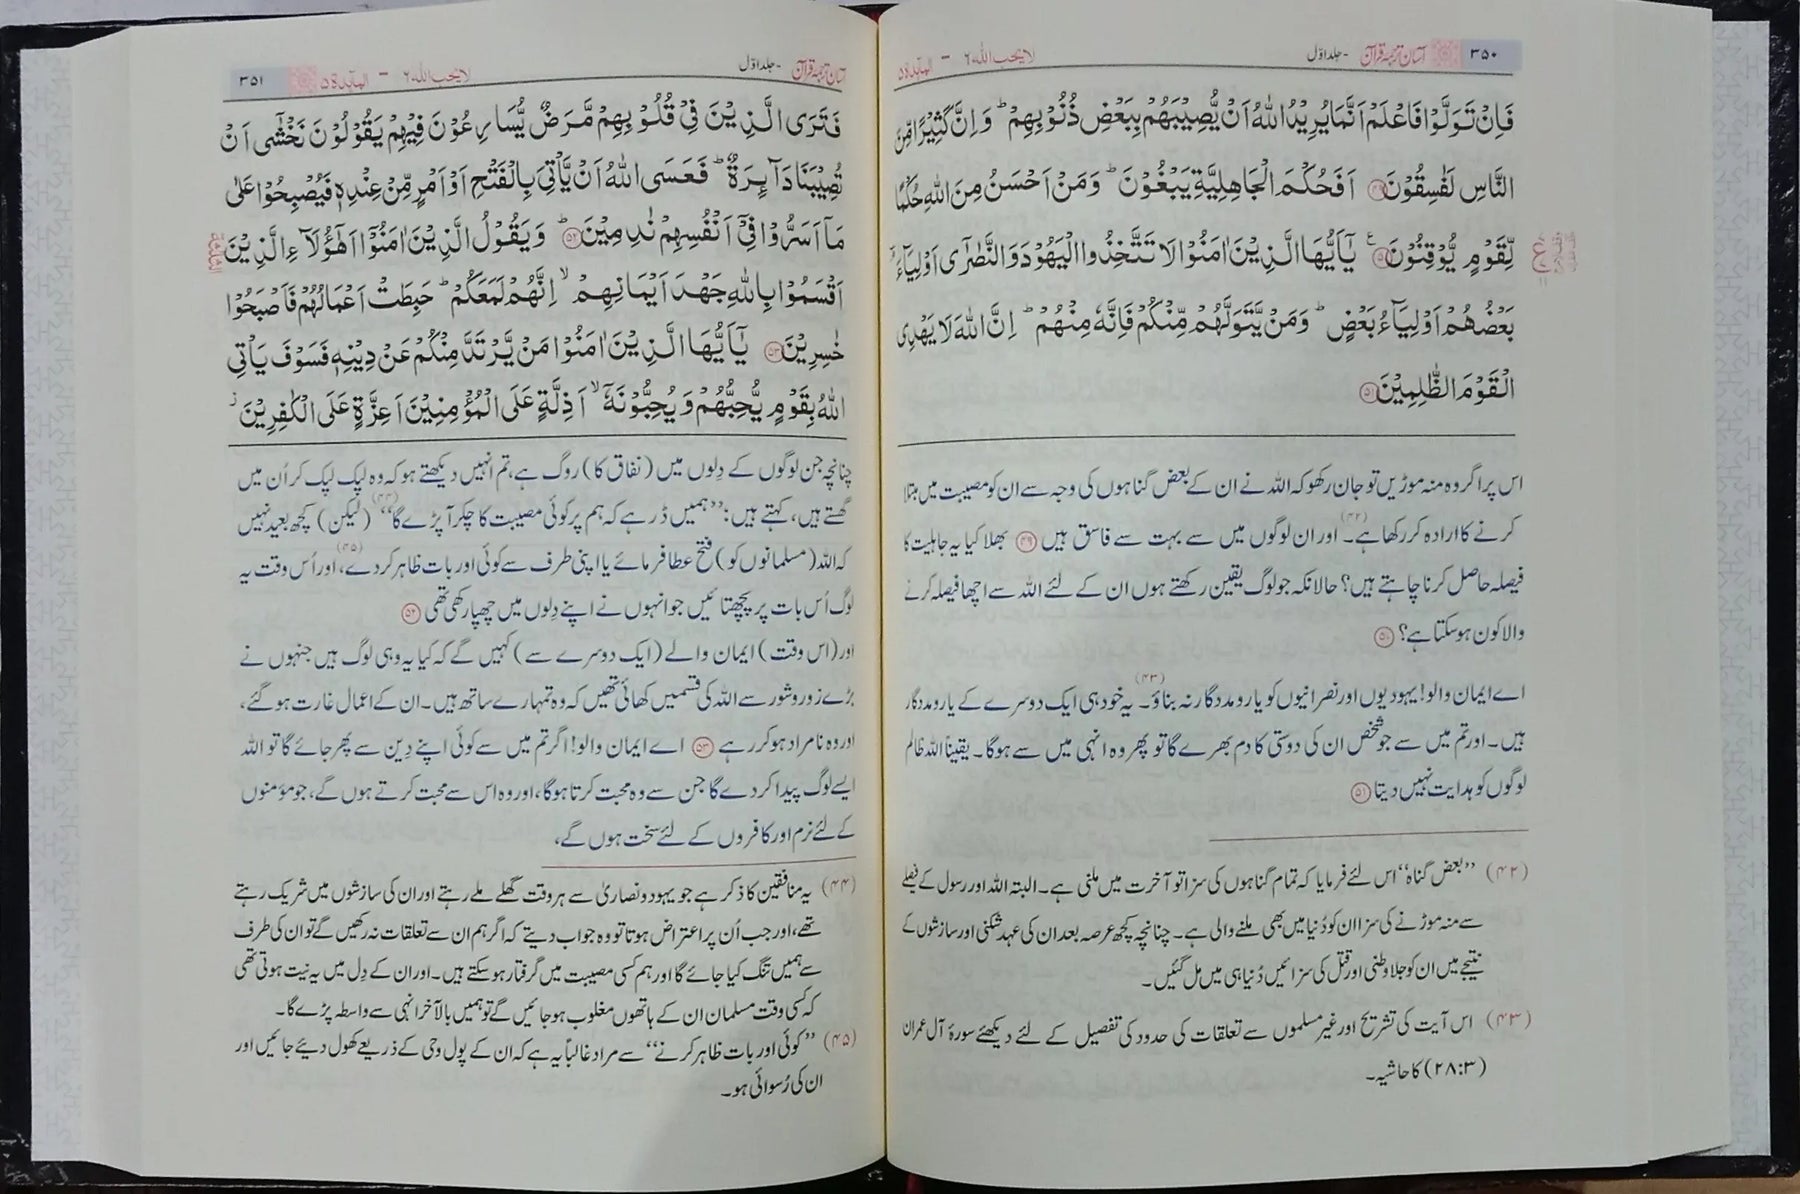 ۳۵۰ آسان ترجمۂ قرآن - جلد اوّل لا یحب اللہ ۶ – المآئدۃ ۵
فَاِنْ تَوَلَّوْا فَاعْلَمْ اَنَّمَا يُرِيْدُ اللّٰهُ اَنْ يُّصِيْبَهُمْ بِبَعْضِ ذُنُوْبِهِمْ ؕ وَ اِنَّ كَثِيْرًا مِّنَ
النَّاسِ لَفٰسِقُوْنَ ﴿۴۹﴾ اَفَحُكْمَ الْجَاهِلِيَّةِ يَبْغُوْنَ ؕ وَ مَنْ اَحْسَنُ مِنَ اللّٰهِ حُكْمًا
لِّقَوْمٍ يُّوْقِنُوْنَ ﴿۵۰﴾ يٰۤاَيُّهَا الَّذِيْنَ اٰمَنُوْا لَا تَتَّخِذُوا الْيَهُوْدَ وَ النَّصٰرٰۤى اَوْلِيَآءَ ۘ
بَعْضُهُمْ اَوْلِيَآءُ بَعْضٍ ؕ وَ مَنْ يَّتَوَلَّهُمْ مِّنْكُمْ فَاِنَّهٗ مِنْهُمْ ؕ اِنَّ اللّٰهَ لَا يَهْدِى
الْقَوْمَ الظّٰلِمِيْنَ ﴿۵۱﴾
اس پر اگر وہ منہ موڑیں تو جان رکھو کہ اللہ نے ان کے بعض گناہوں کی وجہ سے ان کو مصیبت میں مبتلا
کرنے کا ارادہ کر رکھا ہے۔(۴۲) اور ان لوگوں میں سے بہت سے فاسق ہیں ﴿۴۹﴾ بھلا کیا یہ جاہلیت کا
فیصلہ حاصل کرنا چاہتے ہیں؟ حالانکہ جو لوگ یقین رکھتے ہوں ان کے لئے اللہ سے اچھا فیصلہ کرنے
والا کون ہو سکتا ہے؟ ﴿۵۰﴾
اے ایمان والو! یہودیوں اور نصرانیوں کو یار و مددگار نہ بناؤ۔(۴۳) یہ خود ہی ایک دوسرے کے یار و مددگار
ہیں۔ اور تم میں سے جو شخص ان کی دوستی کا دم بھرے گا تو پھر وہ انہی میں سے ہوگا۔ یقیناً اللہ ظالم
لوگوں کو ہدایت نہیں دیتا ﴿۵۱﴾
(۴۲) ”بعض گناہ“ اس لئے فرمایا کہ تمام گناہوں کی سزا تو آخرت میں ملنی ہے۔ البتہ اللہ اور رسول کے فیصلے
سے منہ موڑنے کی سزا ان کو دُنیا میں بھی ملنے والی ہے۔ چنانچہ کچھ عرصہ بعد ان کی عہد شکنی اور سازشوں کے
نتیجے میں ان کو جلا وطنی اور قتل کی سزائیں دُنیا ہی میں مل گئیں۔
(۴۳) اس آیت کی تشریح اور غیر مسلموں سے تعلقات کی حدود کی تفصیل کے لئے دیکھئے سورۂ آل عمران
(۲۸:۳) کا حاشیہ۔
آسان ترجمۂ قرآن - جلد اوّل لا یحب اللہ ۶ – المآئدۃ ۵ ۳۵۱
فَتَرَى الَّذِيْنَ فِىْ قُلُوْبِهِمْ مَّرَضٌ يُّسَارِعُوْنَ فِيْهِمْ يَقُوْلُوْنَ نَخْشٰۤى اَنْ
تُصِيْبَنَا دَآئِرَةٌ ؕ فَعَسَى اللّٰهُ اَنْ يَّاْتِىَ بِالْفَتْحِ اَوْ اَمْرٍ مِّنْ عِنْدِهٖ فَيُصْبِحُوْا عَلٰى
مَاۤ اَسَرُّوْا فِىْۤ اَنْفُسِهِمْ نٰدِمِيْنَ ﴿۵۲﴾ ؕ وَ يَقُوْلُ الَّذِيْنَ اٰمَنُوْۤا اَهٰۤؤُلَآءِ الَّذِيْنَ
اَقْسَمُوْا بِاللّٰهِ جَهْدَ اَيْمَانِهِمْ ۙ اِنَّهُمْ لَمَعَكُمْ ؕ حَبِطَتْ اَعْمَالُهُمْ فَاَصْبَحُوْا
خٰسِرِيْنَ ﴿۵۳﴾ يٰۤاَيُّهَا الَّذِيْنَ اٰمَنُوْا مَنْ يَّرْتَدَّ مِنْكُمْ عَنْ دِيْنِهٖ فَسَوْفَ يَاْتِى
اللّٰهُ بِقَوْمٍ يُّحِبُّهُمْ وَ يُحِبُّوْنَهٗۤ ۙ اَذِلَّةٍ عَلَى الْمُؤْمِنِيْنَ اَعِزَّةٍ عَلَى الْكٰفِرِيْنَ ؗ
چنانچہ جن لوگوں کے دِلوں میں (نفاق کا) روگ ہے، تم انہیں دیکھتے ہو کہ وہ لپک لپک کر اُن میں
گھستے ہیں، کہتے ہیں: ”ہمیں ڈر ہے کہ ہم پر کوئی مصیبت کا چکر آ پڑے گا“(۴۴) (لیکن) کچھ بعید نہیں
کہ اللہ (مسلمانوں کو) فتح عطا فرمائے یا اپنی طرف سے کوئی اور بات ظاہر کردے،(۴۵) اور اُس وقت یہ
لوگ اُس بات پر پچھتائیں جو انہوں نے اپنے دِلوں میں چھپا رکھی تھی ﴿۵۲﴾
اور (اس وقت) ایمان والے (ایک دوسرے سے) کہیں گے کہ کیا یہ وہی لوگ ہیں جنہوں نے
بڑے زور و شور سے اللہ کی قسمیں کھائی تھیں کہ وہ تمہارے ساتھ ہیں۔ ان کے اعمال غارت ہو گئے،
اور وہ نامراد ہو کر رہے ﴿۵۳﴾ اے ایمان والو! اگر تم میں سے کوئی اپنے دِین سے پھر جائے گا تو اللہ
ایسے لوگ پیدا کردے گا جن سے وہ محبت کرتا ہوگا، اور وہ اس سے محبت کرتے ہوں گے، جو مؤمنوں
کے لئے نرم اور کافروں کے لئے سخت ہوں گے،
(۴۴) یہ منافقین کا ذکر ہے جو یہود و نصاریٰ سے ہر وقت گھلے ملے رہتے اور ان کی سازشوں میں شریک رہتے
تھے، اور جب اُن پر اعتراض ہوتا تو وہ جواب دیتے کہ اگر ہم ان سے تعلقات نہ رکھیں گے تو ان کی طرف
سے ہمیں تنگ کیا جائے گا اور ہم کسی مصیبت میں گرفتار ہو سکتے ہیں۔ اور ان کے دِل میں یہ نیت ہوتی تھی
کہ کسی وقت مسلمان ان کے ہاتھوں مغلوب ہو جائیں گے تو ہمیں بالآخر انہی سے واسطہ پڑے گا۔
(۴۵) ”کوئی اور بات ظاہر کرنے“ سے مراد غالباً یہ ہے کہ ان کے پول وحی کے ذریعے کھول دیئے جائیں اور
ان کی رُسوائی ہو۔